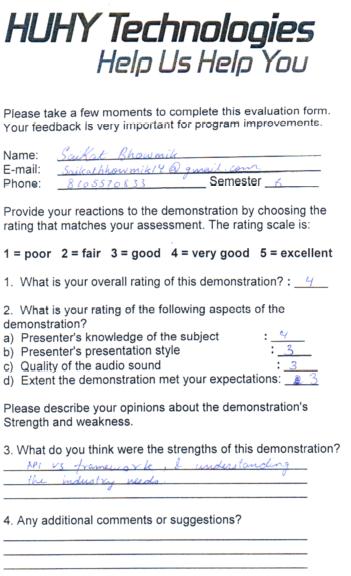 HUHY Technologies
Help Us Help You
Please take a few moments to complete this evaluation form.
Your feedback is very important for program improvements.
Name: Saikat Bhowmik
E-mail: Saikatbhowmik14@gmail.com
Phone: 8105570833 Semester 6
Provide your reactions to the demonstration by choosing the
rating that matches your assessment. The rating scale is:
1 = poor 2 = fair 3 = good 4 = very good 5 = excellent
1. What is your overall rating of this demonstration? : 4
2. What is your rating of the following aspects of the
demonstration?
a) Presenter's knowledge of the subject : 4
b) Presenter's presentation style : 3
c) Quality of the audio sound : 3
d) Extent the demonstration met your expectations: 3
Please describe your opinions about the demonstration's
Strength and weakness.
3. What do you think were the strengths of this demonstration?
API vs framework, & understanding
the industry needs.
4. Any additional comments or suggestions?